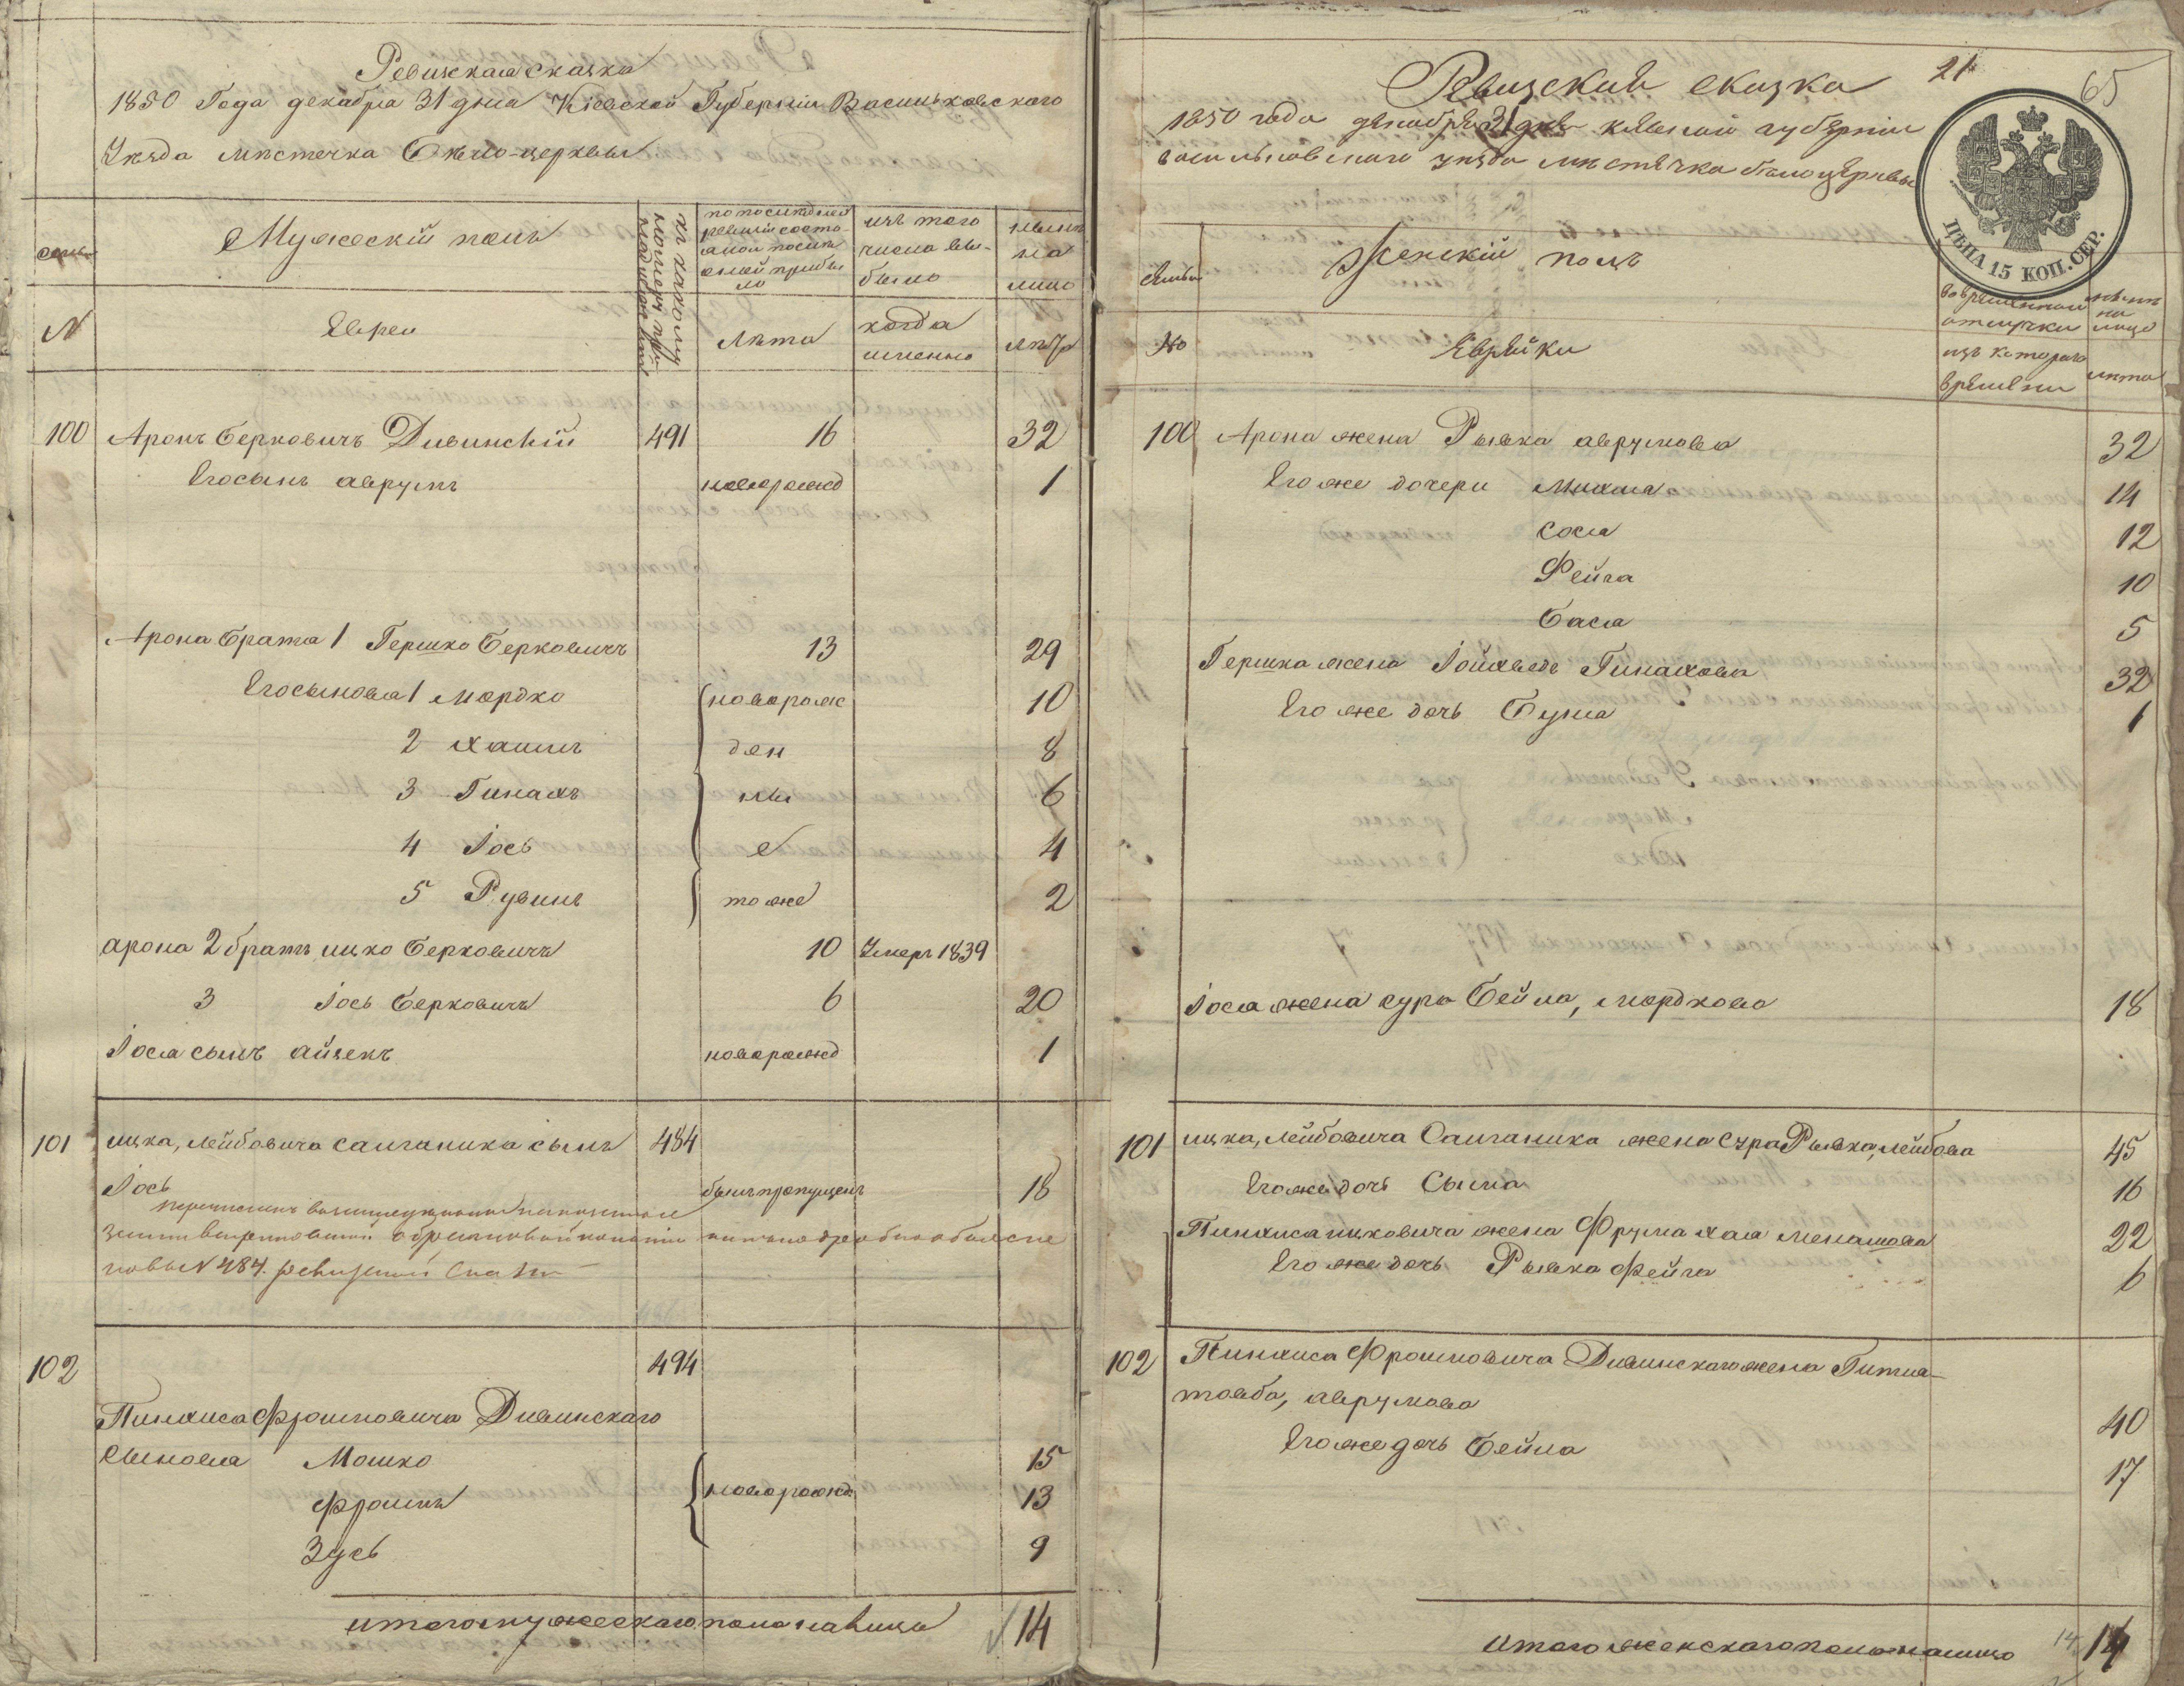 Ревизская сказка
1850 Года декабря 31 дня Кіевской Губерніи Васильковскаго
Уѣзда мѣстечка Бѣло-церквы
семьи
Мужескій полъ
къ какому номеру пр.
по последней ревизіи состо- яло и после оной прибы ло
изъ того числа вы- было
нынѣ на лицо
N
Евреи
лѣта
когда именно
лѣтъ
100 Аронъ Берковичъ Дивинскій 491 16 32
Его сынъ аврумъ новорожд 1
Арона брата 1 Гершко Берковичъ 13 29
Его сыновья 1 Мордко новорож 10
2 Хаимъ ден 8
3 Пинахъ ны 6
4 Іось е 4
5 Рувинъ тоже 2
арона 2 братъ ицко Берковичъ 10 Умеръ 1839
3 Іось Берковичъ 6 20
Іося сынъ айзекъ новорожд 1
101 ицка, лейбовича салганика сынъ 484
Іось былъ пропущенъ 18
новы N 484. ревизской
102 494
Пинхиса Фроимовича Дивинскаго
сыновья Мошко 15
Фроимъ новорожд 13
Зусь 9
итого мужескаго пола налицо 14
Ревизская сказка 21 65
1850 года декабря 31 дня кіевской губерніи
васильковскаго уезда мѣстечка бѣлоцерквы
ЦѢНА 15 КОП. СЕР.
семьи
Женскій полъ
во временной отлучки
нынѣ на лицо
No
Еврейки
изъ котораго времени
лѣта
100 Арона жена Рывка аврумова 32
Его же дочери Михля 14
сося 12
Фейга 10
Бася 5
Гершка жена Іойхведь Пинахова 32
Его же дочь Бума 1
Іося жена сура Бейла, мордкова 18
101 ицка, лейбовича Салганика жена Сура Рывка, лейбова 45
Его же дочь Сыма 16
Пинхиса ицковича жена Фрума хая менашова 22
Его же дочь Рывка Фейга 6
102 Пинхиса Фроимовича Дивинскаго жена Гитля-
товба, аврумова 40
Его же дочь Бейла 17
итого женскаго пола налицо 14 14